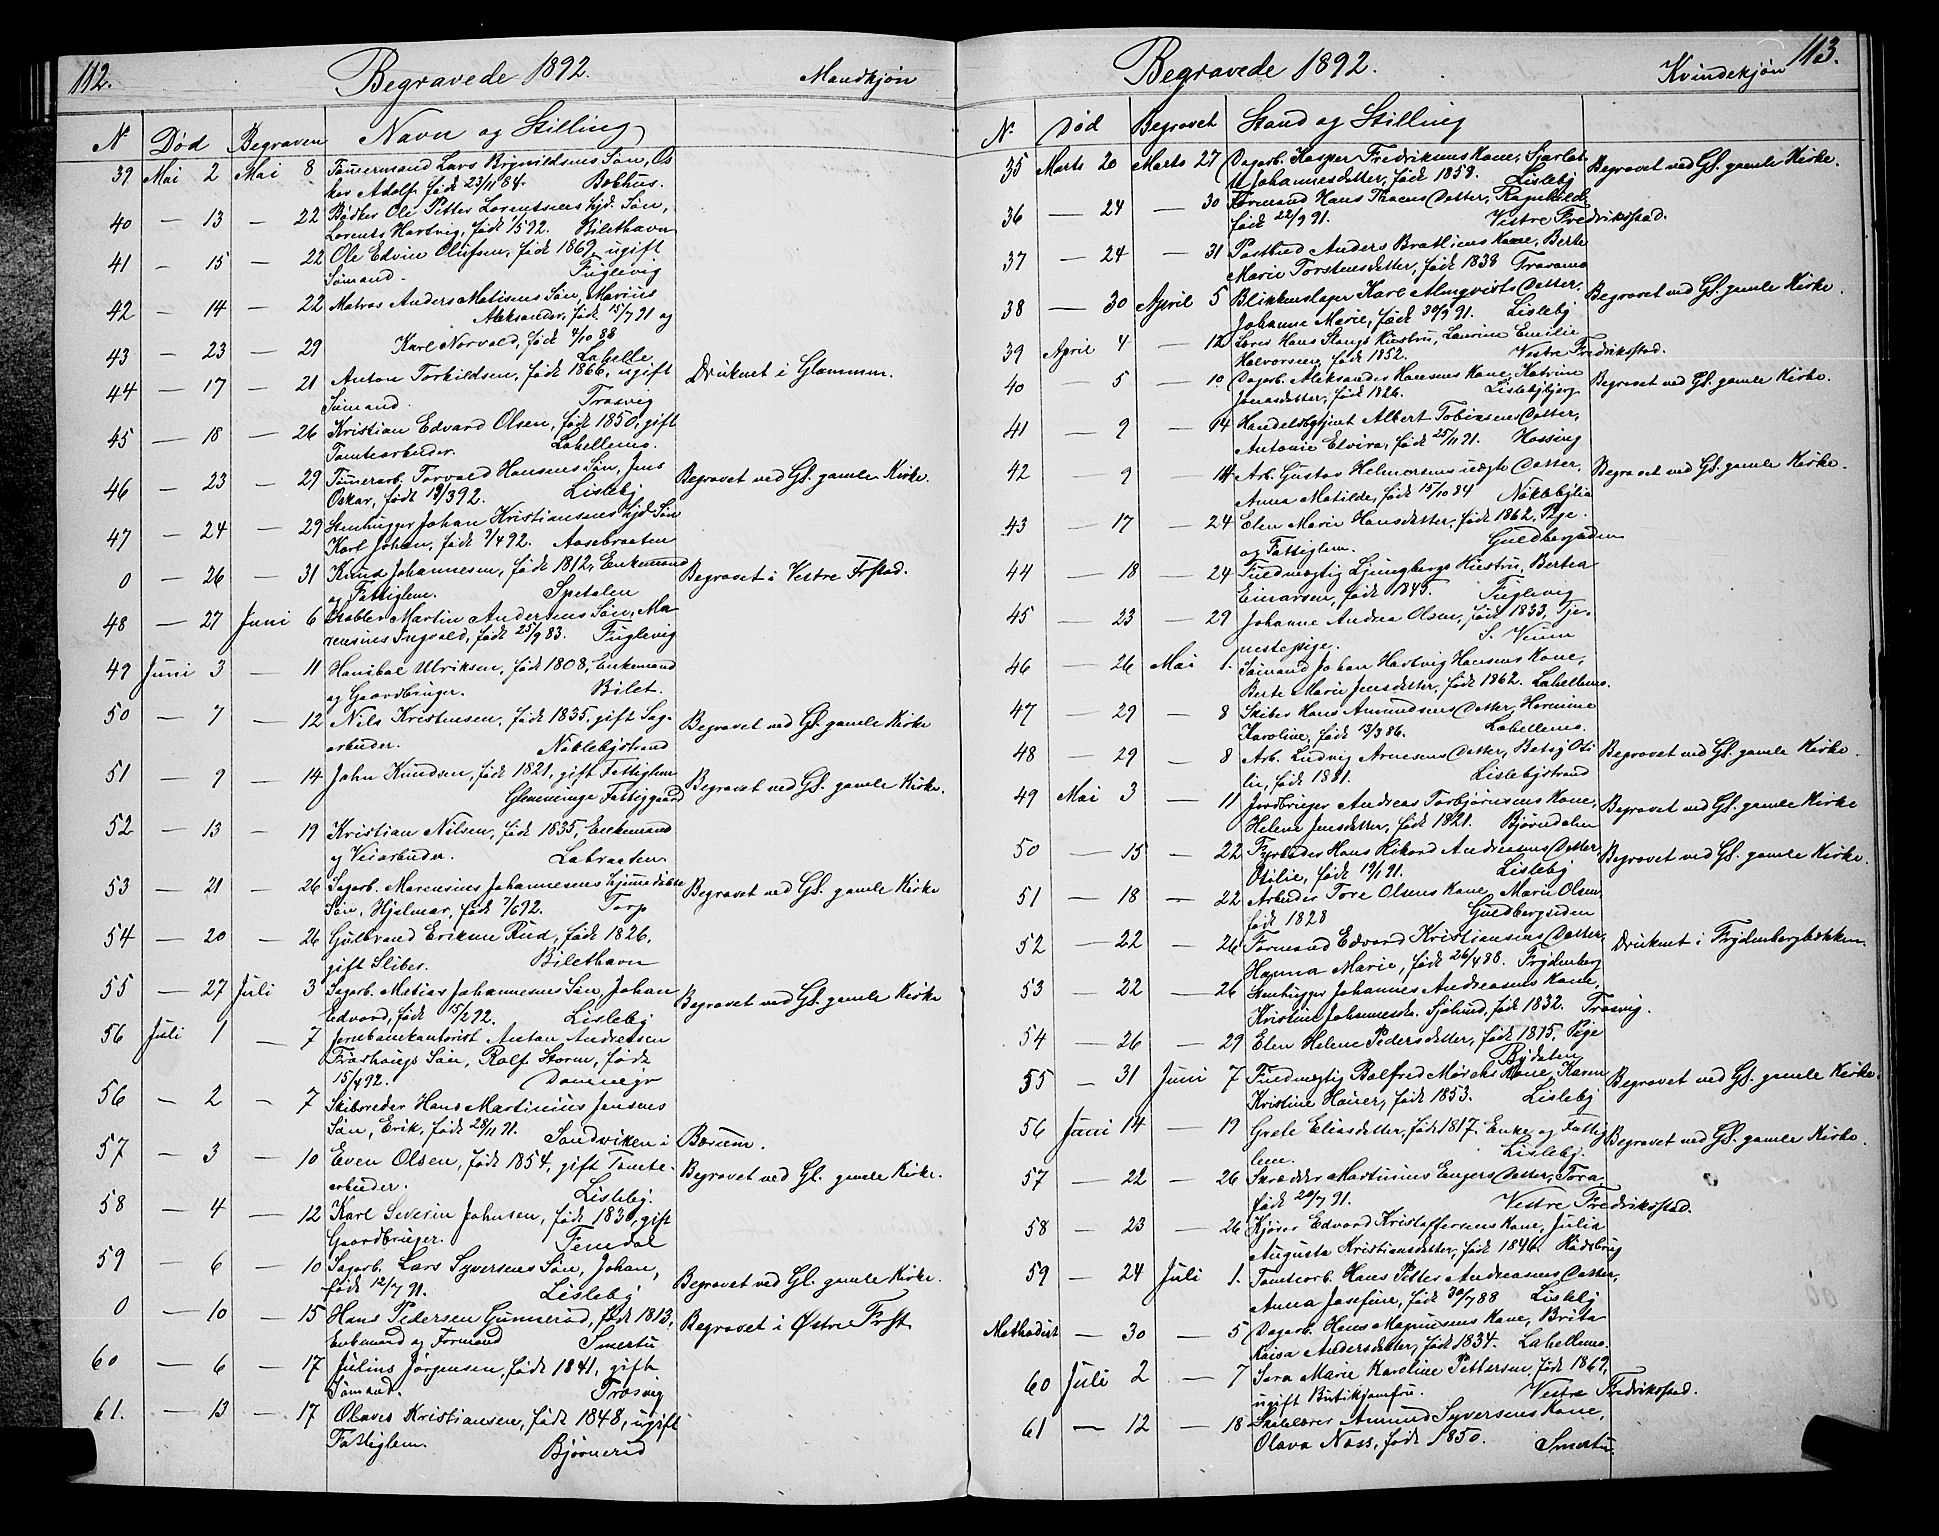 112. Begravede 1892. Mandkjøn
No Død Begraven Navn og Stilling
39 Mai 2 Mai 8 Tømermand Lars Brynildsens Søn, Os
kar Adolf, født 23/11 84. Bokhus.
40 — 13 — 22 Bødker Ole Petter Lorentsens hjd. Søn,
Lorents Hartvig, født 1592. Bilethavn
41 — 15 — 22 Ole Edvin Olufsen, født 1869, ugift
Sømand. Fuglevig
42 — 14 — 22 Matros Anders Matisens Søn, Marius
Aleksander, født 15/7 91 og
43 — 23 — 29 Karl Norvald, født 4/10 88
Lahelle
44 — 17 — 21 Anton Torkildsen, født 1866, ugift Druknet i Glommen.
Sømand. Trosvig
45 — 18 — 26 Kristian Edvard Olsen, født 1850, gift
Tomtearbeider. Lahellemo.
46 — 23 — 29 Tømerarb. Torvald Hansens Søn, Jens Begravet ved Gl. gamle Kirke.
Oskar, født 19/3 92. Lisleby
47 — 24 — 29 Stenhugger Johan Kristiansens hjd. Søn
Karl Johan, født 7/4 92. Aasebraaten
0 — 26 — 31 Knud Johannesen, født 1812, Enkemand Begravet i Vestre Frstad.
og Fattiglem. Spetalen
48 — 27 Juni 6 Stabler Martin Andersens Søn, Ma-
rensius Ingvald, født 25/9 83. Fuglevig
49 Juni 3 — 11 Hanibal Ulriksen, født 1808, Enkemand
og Gaardbruger. Bilet.
50 — 7 — 12 Nils Kristensen, født 1835, gift Sag- Begravet ved Gl. gamle Kirke
arbeider. Nøklebystrand
51 — 9 — 14 John Knudsen, født 1821, gift Fattiglem Begravet ved Gl. gamle Kirke.
Glemminge Fattiggaard
52 — 13 — 19 Kristian Nilsen, født 1835, Enkemand
og Veiarbeider. Labraaten
53 — 21 — 26 Sagarb. Marensius Johannesens hjemedøbte Begravet ved Gl. gamle Kirke
Søn, Hjalmar, født 7/6 92. Torp
54 — 20 — 26 Gulbrand Eriksen Rud, født 1826,
gift Sliber. Bilethavn
55 — 27 Juli 3 Sagarb. Matias Johannesens Søn, Johan Begravet ved Gl. gamle Kirke
Edvard, født 15/2 92. Lisleby
56 Juli 1 — 7 Jernbanekontorist Anton Andresen
Frashaugs Søn, Rolf Storm, født
15/4 92.
56 — 2 — 7 Skibsreder Hans Martinius Jensens
Søn, Erik, født 28/11 91. Sandviken i Bærum.
57 — 3 — 10 Even Olsen, født 1854, gift Tomte- Begravet ved Gl. gamle Kirke.
arbeider. Lisleby.
58 — 4 — 12 Karl Severin Johnsen, født 1830, gift
Gaardbruger. Femdal
59 — 6 — 10 Sagarb. Lars Syversens Søn, Johan, Begravet ved Gl. gamle Kirke.
født 12/7 91. Lisleby
0 — 10 — 15 Hans Pedersen Gunnerød, født 1813, Begravet i Østre Frst
Enkemand og Formand Smertu
60 — 6 — 17 Julius Jørgensen, født 1841, gift
Sømand. Trosvig
61. — 13 — 17 Olaves Kristiansen, født 1848, ugift
Fattiglem. Bjørnerød
Begravede 1892. Kvindekjøn 113.
No. Død Begravet Stand og Stilling
35 Marts 20 Marts 27 Dagarb. Kasper Fredriksens Kone, Sjarlot Begravet ved Gl. gamle Kirke.
te Johannesdetter, født 1858. Lisleby
36 — 24 — 30 Formand Hans Thoens Datter, Ragnhild
født 22/9 91. Vestre Fredriksstad.
37 — 24 — 31 Postbud Anders Bratliens Kone, Berte
Marie Torstensdetter, født 1838
38 — 30 April 5 Blikkenslager Karl Almqvists Datter, Begravet ved Gl. gamle Kirke.
Johanne Marie, født 30/9 91. Lisleby
39 April 4 — 12 Lærer Hans Stangs Hustru, Laurine Emilie
Halvorsen, født 1852. Vestre Fredriksstad.
40 — 5 — 10 Dagarb. Aleksander Hansens Kone, Katrine Begravet ved Gl. gamle Kirke.
Jonasdetter, født 1826. Lislebybjerg
41 — 9 — 14 Handelsbetjent Albert Tobiasens Datter,
Antonie Elvira, født 25/11 91. Hassing
42 — 9 — 14 Arb. Gustav Helmersens uægte Datter, Begravet ved Gl. gamle Kirke.
Anna Matilde, født 15/10 84 Nøklebylia
43 — 17 — 24 Elen Marie Hansdetter, født 1862, Pige
og Fattiglem. Guldbergsiden
44 — 18 — 24 Fuldmægtig Ljungbergs Hustru, Bertea
Einarsen, født 1845. Fuglevig
45 — 23 — 29 Johanne Andrea Olsen, født 1833, Tje-
nestepige. S. Veum
46 — 26 Mai 1. Sømand Johan Hartvig Hansens Kone,
Berte Marie Jensdetter, født 1862. Lahellemo.
47 — 29 — 8 Skiber Hans Amundsens Datter, Hermine
Karoline, født 13/3 86. Lahellemo.
48 — 29 — 8 Arb. Ludvig Arnesens Datter, Betsy Oti Begravet ved Gl. gamle Kirke.
lie, født 1881. Lislebystrand
49 Mai 3 — 11 Jordbruger Andreas Torbjørnsens Kone, Begravet ved Gl. gamle Kirke
Helene Jensdetter, født 1821. Bjørndalen
50 — 15 — 22 Fyrbøder Hans Rikard Andreasens Datter, Begravet ved Gl. gamle Kirke.
Otilie, født 19/1 91. Lisleby
51 — 18 — 22 Arbeider Tore Olsens Kone, Marie Olsen,
født 1828 Guldbergsiden
52 — 22 — 26 Formand Edvard Kristiansens Datter, Druknet i Frydenbergbækken.
Hanna Marie, født 26/4 88. Frydenberg
53 — 22 — 26 Stenhugger Johannes Andreasens Kone,
Kristine Johannesda. Sjølund, født 1832. Trosvig.
54 — 26 — 29 Elen Helene Pedersdetter, født 1815, Pige
Bydalen
55 — 31 Juni 7 Fuldmægtig Balfred Mørchs Kone, Karen Begravet ved Gl. gamle Kirke.
Kristine Hauer, født 1853. Lisleby
56 Juni 14 — 19 Grete Eliasdetter, født 1817. Enke og Fattig Begravet ved Gl. gamle Kirke.
lem. Lisleby.
57 — 22 — 26 Skrædder Martinius Engers Datter, Tora
født 20/7 91. Vestre Fredriksstad.
58 — 23 — 26 Kjører Edvard Kristoffersens Kone, Julia
Augusta Kristiansdetter, født 1846. Rødsbyg
59 — 24 Juli 1. Tomtearb. Hans Petter Andreasens Datter,
Anna Josefine, født 30/7 88 Lisleby
Methodist — 30 — 5 Dagarb. Hans Magnusens Kone, Brita
Kaisa Andersdetter, født 1834. Lahellemo.
60 Juli 2 — 7 Sara Marie Karoline Pettersen, født 1869,
ugift Butikjomfru. Vestre Fredriksstad.
61 — 12 — 18 Skolelærer Amund Syversens Kone,
Olava Næss, født 1850. Smertu.